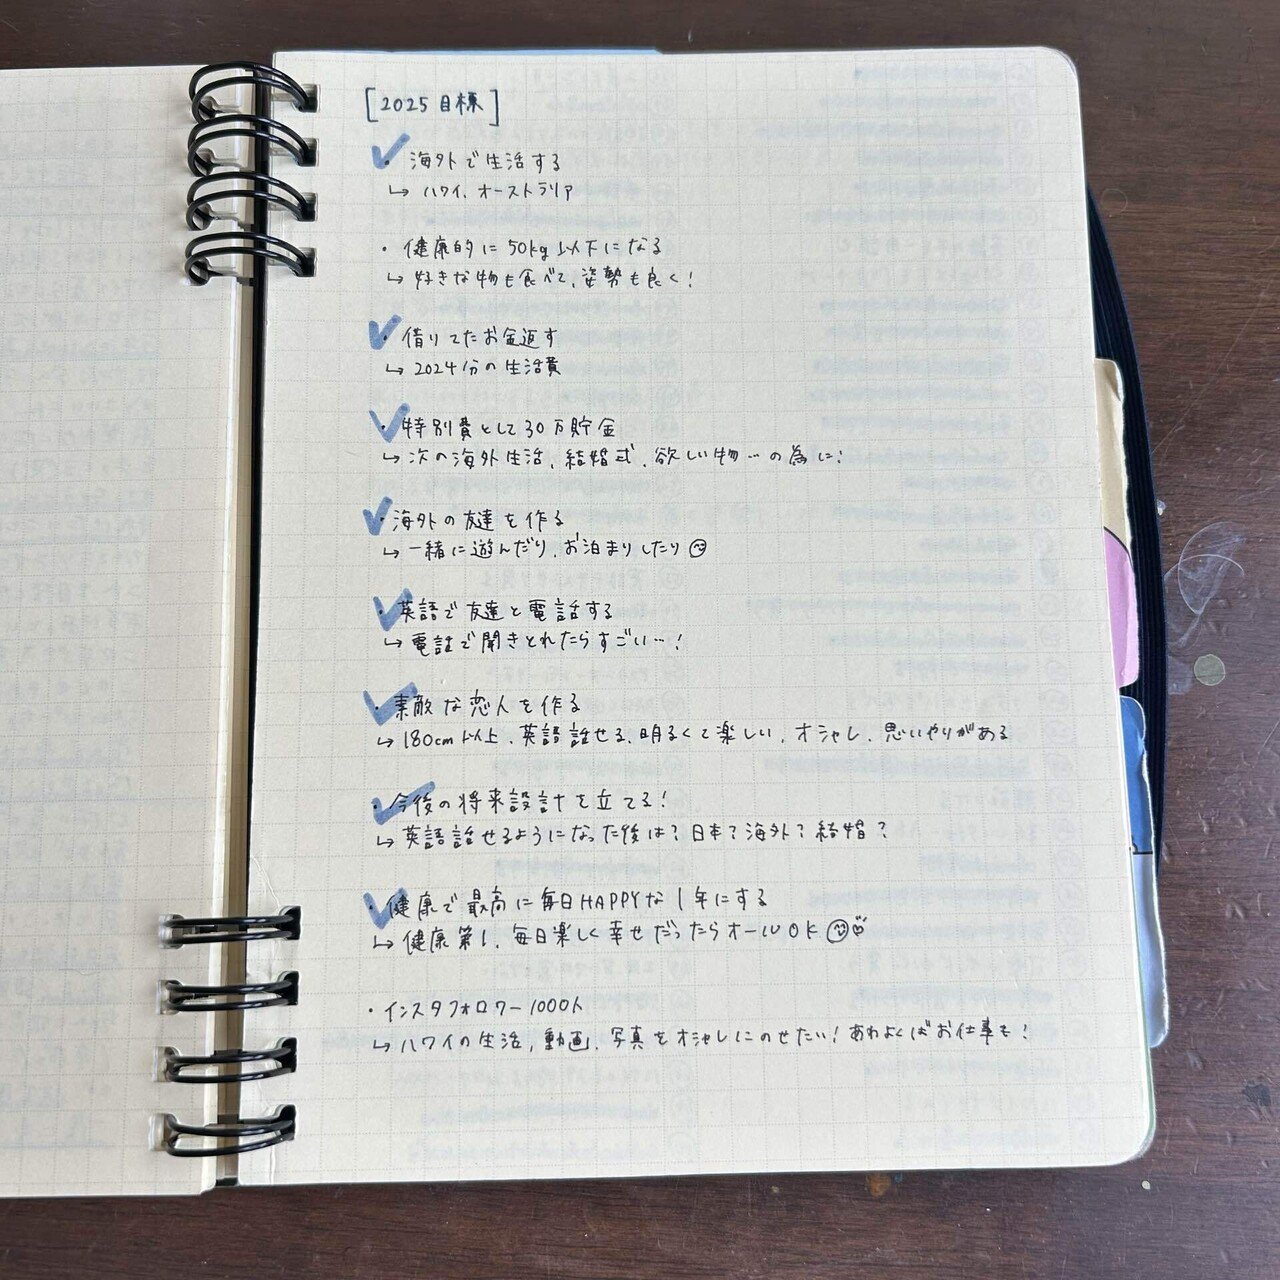 [2025目標]
・海外で生活する
↳ ハワイ、オーストラリア
・健康的に50kg以下になる
↳ 好きな物も食べて、姿勢も良く！
・借りてたお金返す
↳ 2024分の生活費
・特別費として30万貯金
↳ 次の海外生活、結婚式、欲しい物…の為に！
・海外の友達を作る
↳ 一緒に遊んだり、お泊まりしたり
・英語で友達と電話する
↳ 電話で聞きとれたらすごい…！
・素敵な恋人を作る
↳ 180cm以上、英語話せる、明るくて楽しい、オシャレ、思いやりがある
・今後の将来設計を立てる！
↳ 英語話せるようになった後は？日本？海外？結婚？
・健康で最高に毎日HAPPYな1年にする
↳ 健康第1、毎日楽しく幸せだったらオールOK
・インスタフォロワー1000人
↳ ハワイの生活、動画、写真をオシャレにのせたい！あわよくばお仕事も！